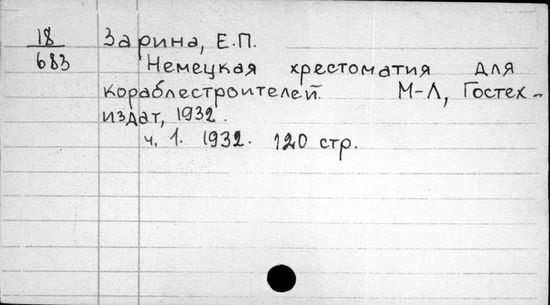 18 Зарина, Е.П.
683 Немецкая хрестоматия для
кораблестроителей. М-Л, Гостех-
издат, 1932.
ч. 1. 1932. 120 стр.